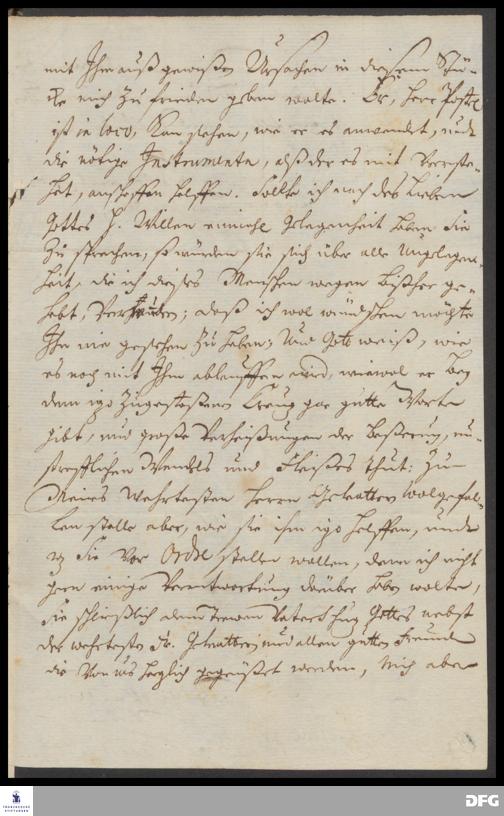 mit Ihm auß gewißen Ursachen in diesem Stü-
cke mich zu frieden geben wolte. Er, Herr Postel
ist in loco, kan sehen, wie er es anwendet, und
die nötige Instrumenta, alß der es mit verste-
het, anschaffen helffen. Solte ich nach des Lieben
Gottes H. Willen einmahl Gelegenheit haben Sie
zu sprechen, so würden sie sich über alle Ungelegen-
heit, die ich dieses Menschen wegen bißher ge-
habt, verwundern; daß ich wol wündschen möchte
Ihn nie gesehen zu haben; Und Gott weiß, wie
es noch mit Ihm ablauffen wird, wiewol er bey
dem izo zugestoßenen Creuz gar gutte Worte
gibt, und große Verheißungen der Beßerung, un-
sträfflichen Wandels und Fleißes thut: Zu
Meines Wehrtesten Herrn Gevatters Wolgefal-
len stelle aber, wie sie ihm izo helffen, und
Sie vor Ordre stellen wollen, denn ich nicht
gern einige Verantwortung darüber haben wolte,
Sie schließlich dem treuen Vaterschuz Gottes nebst
der wehrtesten Fr. Gevatterin und allen gutten Freund
die von uns herzlich gegrüßet werden, Mich aber
FRANCKESCHE
STIFTUNGEN
DFG